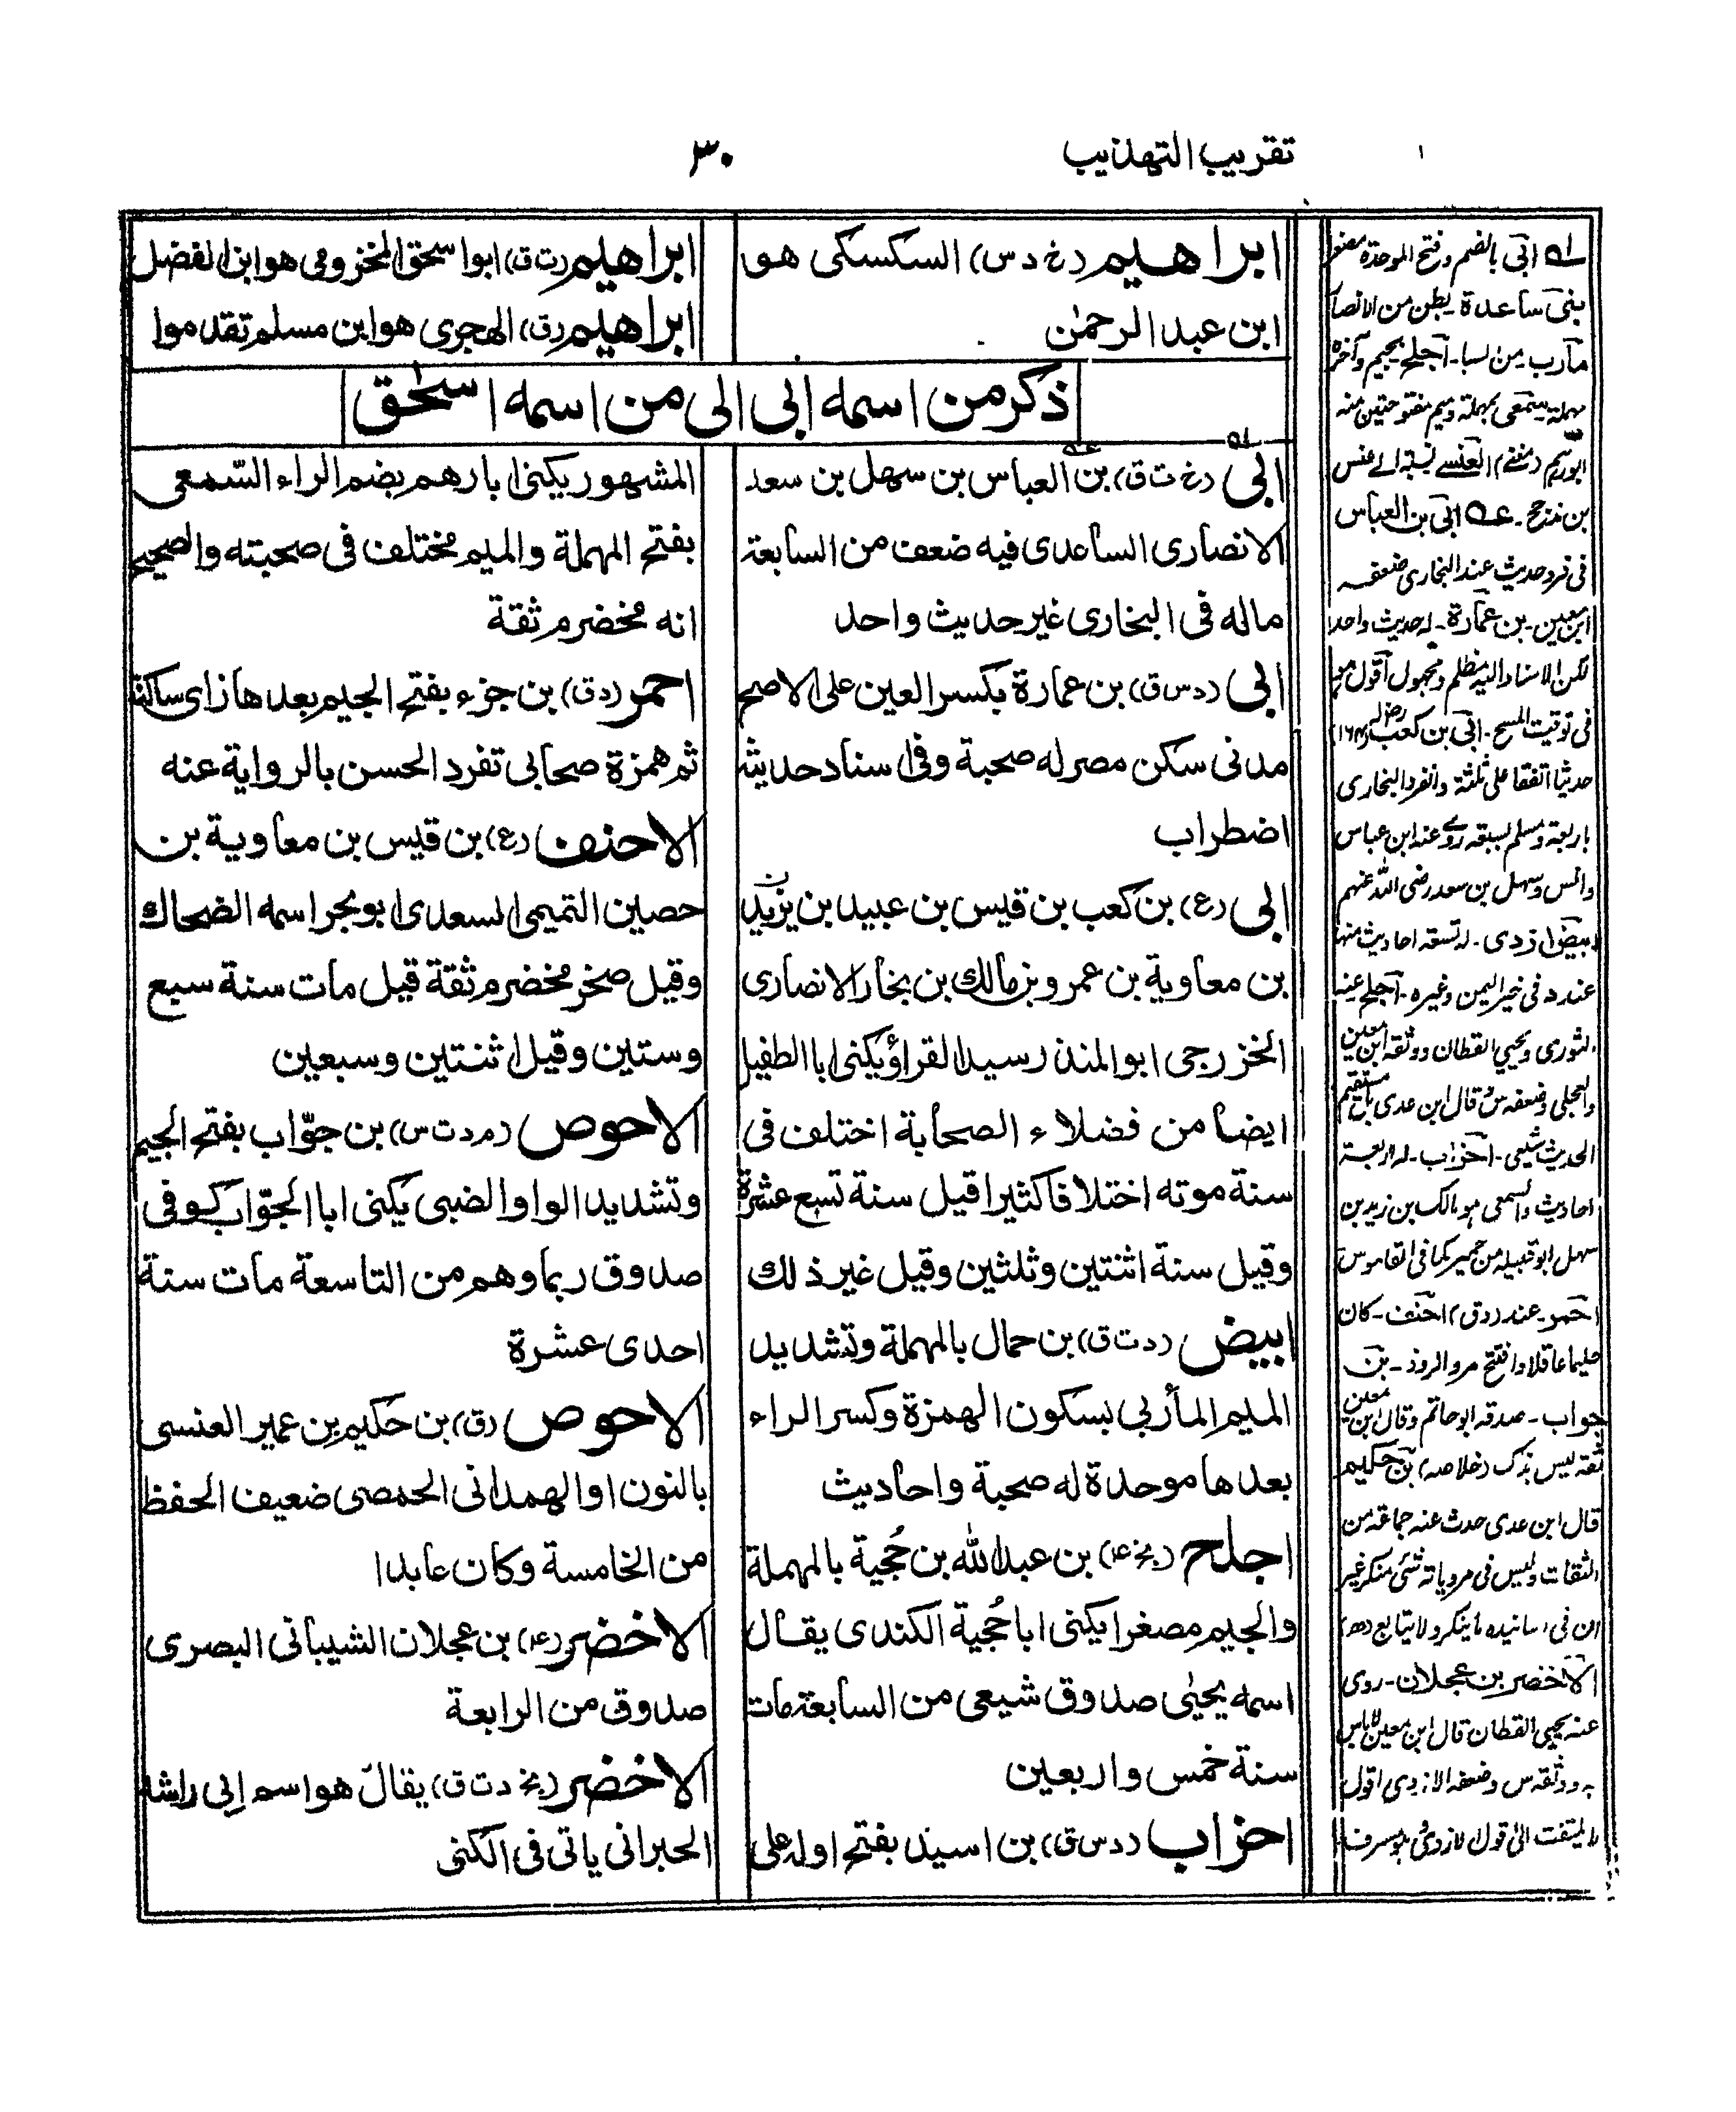 تقريب التهذيب
٣٠
ابراهيم (خ د س) السكسكى هو
ابن عبد الرحمٰن
ابراهيم (ت ق) ابو اسحق المخزومى هو ابن الفضل
ابراهيم (ق) الهجرى هو ابن مسلم تقدموا
ذكر من اسمه ابى الى من اسمه اسحٰق
ابى (خ ت ق) بن العباس بن سهل بن سعد
الانصارى الساعدى فيه ضعف من السابعة
ماله فى البخارى غير حديث واحد
ابى (د س ق) بن عمارة بكسر العين على الاصح
مدنى سكن مصر له صحبة وفى اسناد حديثه
اضطراب
ابى (ع) بن كعب بن قيس بن عبيد بن يزيد
بن معاوية بن عمرو بن مالك بن نجار الانصارى
الخزرجى ابو المنذر سيد القراؤ يكنى ابا الطفيل
ايضا من فضلاء الصحابة اختلف فى
سنة موته اختلافا كثيرا قيل سنة تسع عشرة
وقيل سنة اثنتين وثلثين وقيل غير ذلك
ابيض (د ت ق) بن حمال بالمهملة وتشديد
الميم المأربى بسكون الهمزة وكسر الراء
بعدها موحدة له صحبة واحاديث
اجلح (بخ عه) بن عبد الله بن حُجية بالمهملة
والجيم مصغرا يكنى ابا حُجية الكندى يقال
اسمه يحيٰى صدوق شيعى من السابعة مات
سنة خمس واربعين
احزاب (د س ق) بن اسيد بفتح اوله على
المشهور يكنى ابا رهم بضم الراء السّمعى
بفتح المهملة والميم مختلف فى صحبته والصحيح
انه مُخضرم ثقة
احمر (د ق) بن جزء بفتح الجيم بعدها زاى ساكنة
ثم همزة صحابى تفرد الحسن بالرواية عنه
الاحنف (ع) بن قيس بن معاوية بن
حصين التميمى السعدى ابو بحر اسمه الضحاك
وقيل صخر مخضرم ثقة قيل مات سنة سبع
وستين وقيل اثنتين وسبعين
الاحوص (م د ت س) بن جوّاب بفتح الجيم
وتشديد الواو الضبى يكنى ابا الجوّاب كوفى
صدوق ربما وهم من التاسعة مات سنة
احدى عشرة
الاحوص (ق) بن حكيم بن عمير العنسى
بالنون او الهمدانى الحمصى ضعيف الحفظ
من الخامسة وكان عابدا
الاخضر (عه) بن عجلان الشيبانى البصرى
صدوق من الرابعة
الاخضر (بخ د ت ق) يقال هو اسم ابى راشد
الحبرانى ياتى فى الكنى
له ابى بالضم وفتح الموحدة مصغرا
بنى ساعدة بطن من الانصار
مآرب من سبا۔ اجلح بجيم وآخره
مهملة سمعى بمهملة وميم مفتوحتين منه
ابو رهم (مغنى) العنسى نسبة الى عنس
بن مذحج۔ عه ابى بن العباس
فى فرد حديث عند البخارى ضعفه
ابن معين۔ بن عمارة۔ له حديث واحد
لكن الاسناد اليه مظلم ومجهول اقول هو
فى توقيت المسح۔ ابى بن كعب رض له (١٦٤)
حديثا اتفقا على ثلثة وانفرد البخارى
باربعة ومسلم بسبعة روى عنه ابن عباس
وانس وسهل بن سعد رضى الله عنهم
ابيض ازدى۔ له تسعة احاديث منها
عنده فى خبر اليمن وغيره۔ اجلح عنه
الثورى ويحيى القطان ووثقه ابن معين
والعجلى وضعفه س وقال ابن عدى مستقيم
الحديث شيعى۔ احزاب۔ له اربعة
احاديث والسمعى هو مالك بن زيد بن
سهل ابو قبيلة من حمير كما فى القاموس
احمر۔ عند (د ق) احنف۔ كان
حليما عاقلا وافتتح مرو الروذ۔ بن
جواب۔ صدقه ابو حاتم وقال ابن معين
ثقة ليس بذك (خلاصه) بن حكيم
قال ابن عدى حدث عنه جماعة من
الثقات وليس فى مروياته شئ منكر غير
ان فى اسانيده ما ينكر ولا يتابع (ه)
الاخضر بن عجلان۔ روى
عنه يحيى القطان قال ابن معين لا باس
به ووثقه س وضعفه الازدى اقول
لا يلتفت الى قول الازدى هو مسرف